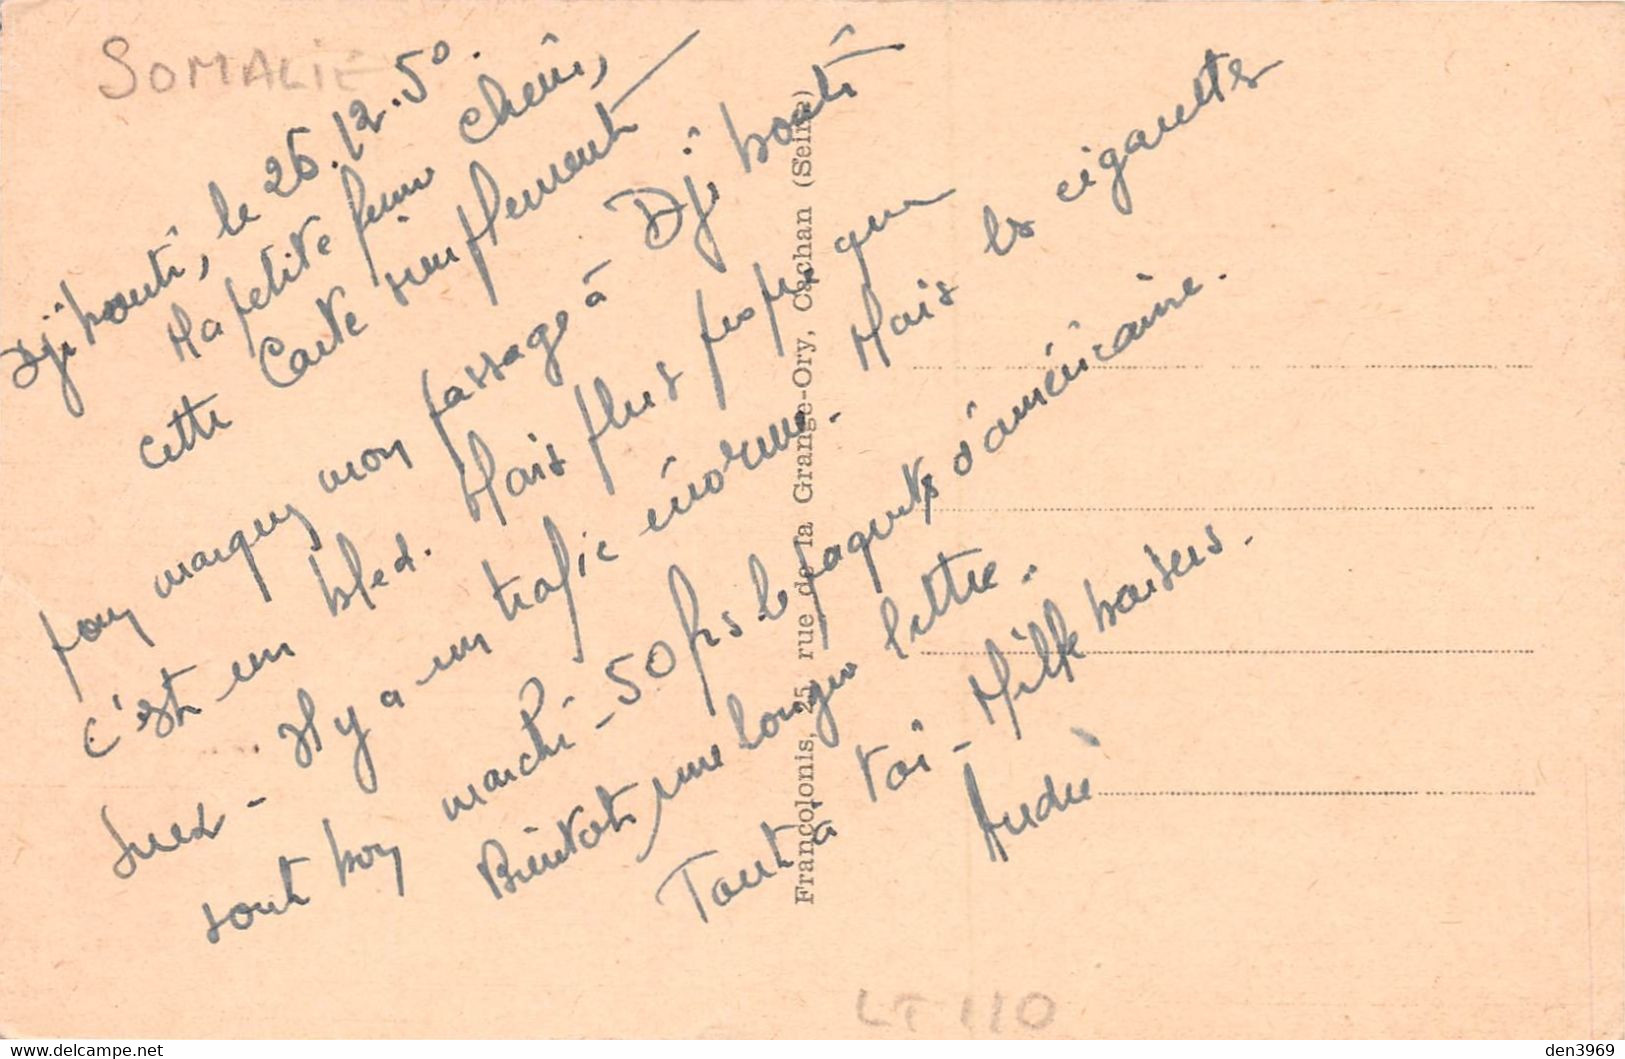 SOMALIE
Djibouti, le 26.12.50.
Ma petite femme chérie,
cette carte simplement
pour marquer mon passage à Djibouti
c'est un bled. Mais plus propre que
Suez - Il y a un trafic énorme. Mais les cigarettes
sont bon marché - 50 frs le paquets d'américaine.
Bientôt une longue lettre.
Tout à toi - Mille baisers.
André
Francolonis, 25, rue de la Grange-Ory, Cachan (Seine)
LT 110
den3969